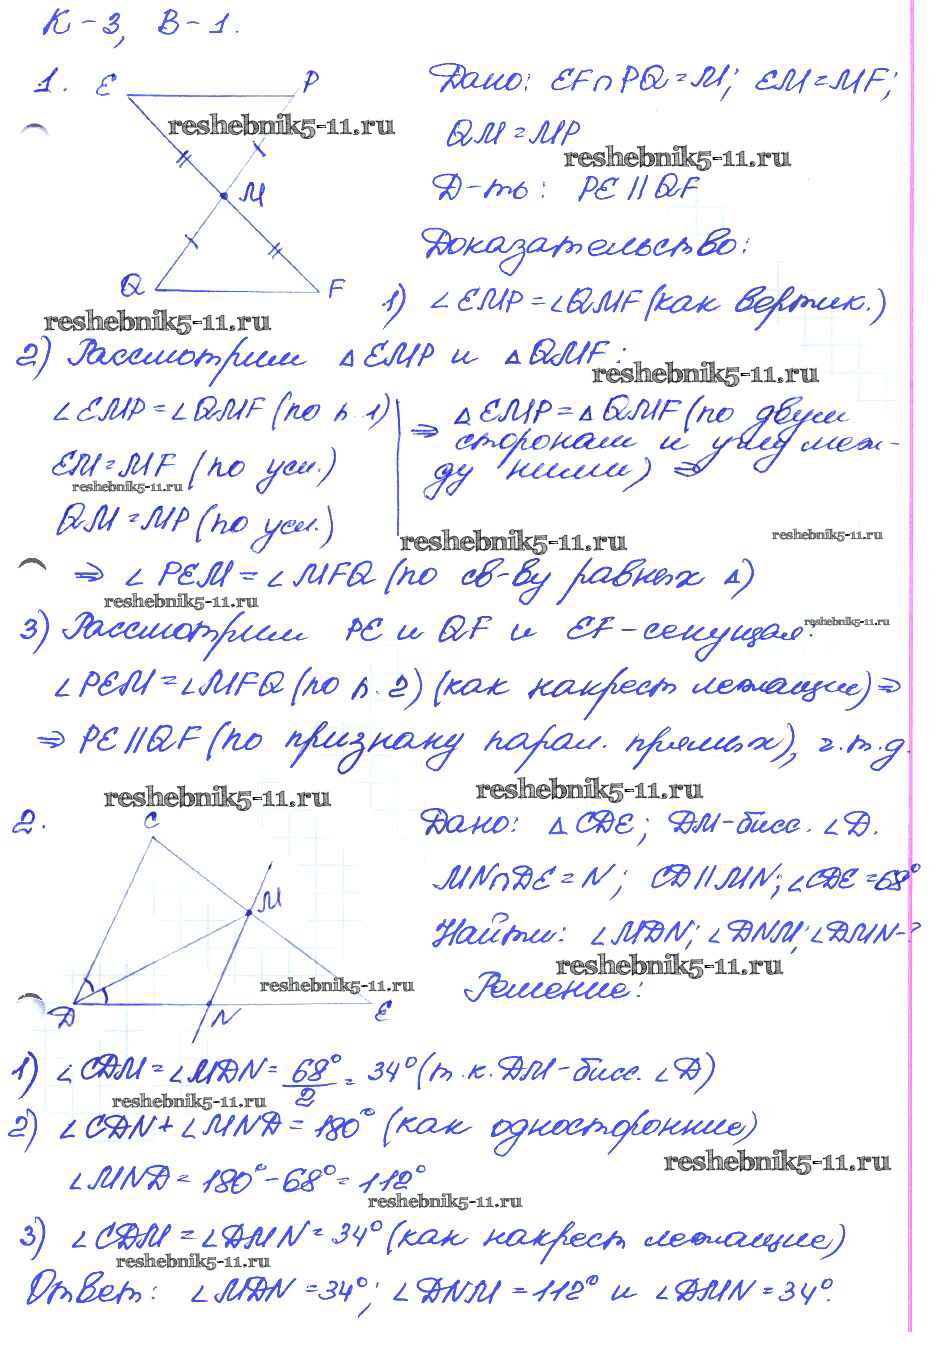 К-3, В-1.
1. E P
Дано: EF∩PQ=M; EM=MF;
reshebnik5-11.ru
QM=MP
reshebnik5-11.ru
Д-ть: PE||QF
M
Доказательство:
Q F
1) ∠EMP=∠QMF (как вертик.)
reshebnik5-11.ru
2) Рассмотрим △EMP и △QMF:
reshebnik5-11.ru
∠EMP=∠QMF (по п.1)
EM=MF (по усл.)
reshebnik5-11.ru
QM=MP (по усл.)
⇒ △EMP=△QMF (по двум
сторонам и углу меж-
ду ними) ⇒
reshebnik5-11.ru
reshebnik5-11.ru
⇒ ∠PEM=∠MFQ (по св-ву равных △)
reshebnik5-11.ru
reshebnik5-11.ru
3) Рассмотрим PE и QF и EF-секущая:
∠PEM=∠MFQ (по п.2) (как накрест лежащие)⇒
⇒ PE||QF (по признаку парал. прямых), ч.т.д.
reshebnik5-11.ru
reshebnik5-11.ru
2. C
Дано: △CDE; DM-бисс. ∠D.
MN∩DE=N; CD||MN; ∠CDE=68°
M
Найти: ∠MDN; ∠DNM; ∠DMN-?
reshebnik5-11.ru
reshebnik5-11.ru
Решение:
D N E
1) ∠CDM=∠MDN=68°/2=34° (т.к. DM-бисс. ∠D)
reshebnik5-11.ru
2) ∠CDN+∠MND=180° (как односторонние)
reshebnik5-11.ru
∠MND=180°-68°=112°
reshebnik5-11.ru
3) ∠CDM=∠DMN=34° (как накрест лежащие)
reshebnik5-11.ru
Ответ: ∠MDN=34°; ∠DNM=112° и ∠DMN=34°.